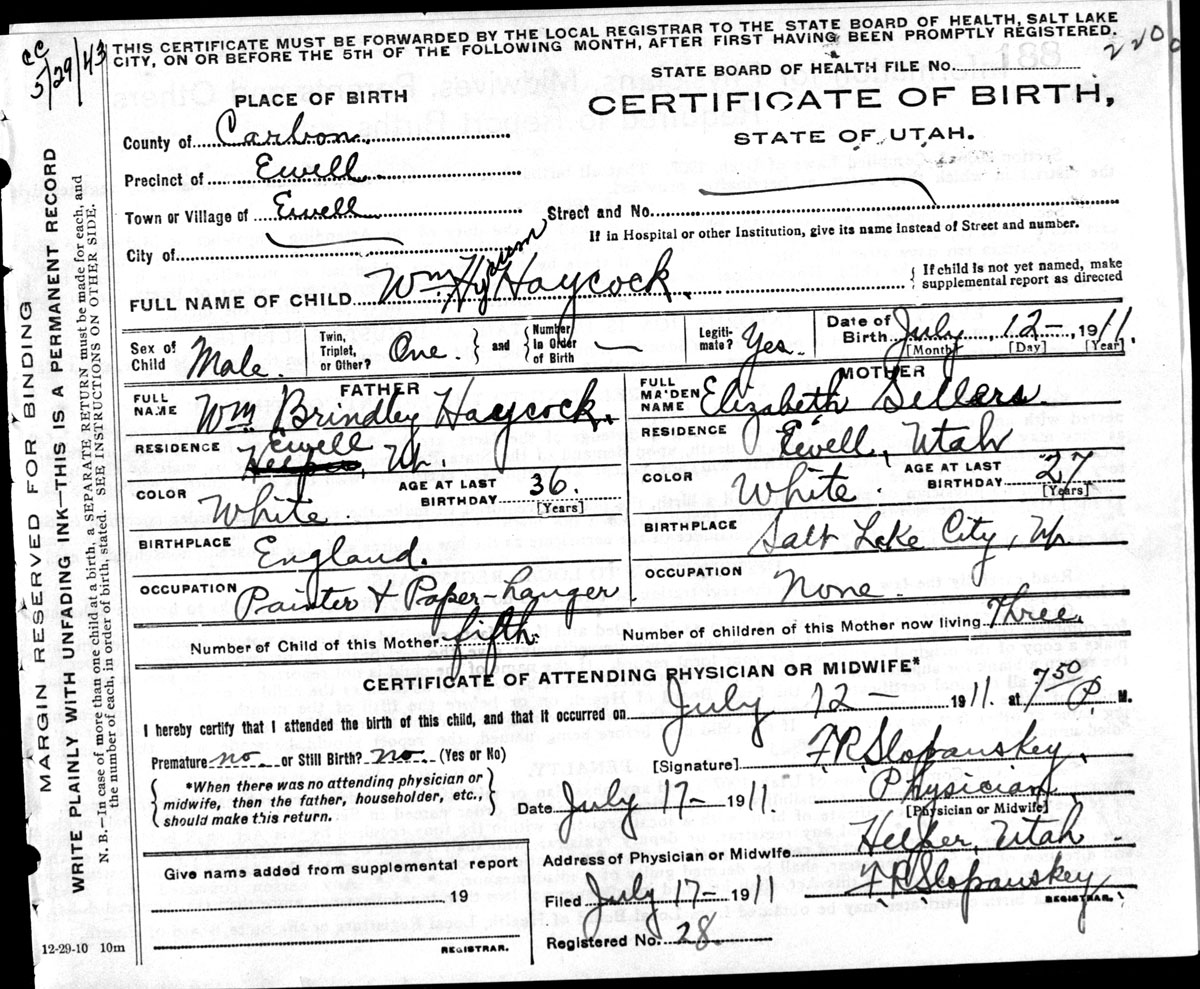 cc
5/29/43
THIS CERTIFICATE MUST BE FORWARDED BY THE LOCAL REGISTRAR TO THE STATE BOARD OF HEALTH, SALT LAKE
CITY, ON OR BEFORE THE 5TH OF THE FOLLOWING MONTH, AFTER FIRST HAVING BEEN PROMPTLY REGISTERED.
STATE BOARD OF HEALTH FILE No.
PLACE OF BIRTH
CERTIFICATE OF BIRTH,
STATE OF UTAH.
County of Carbon
Precinct of Ewell
Town or Village of Ewell Street and No.
City of If in Hospital or other Institution, give its name instead of Street and number.
FULL NAME OF CHILD Wm Hyrum Haycock. { If child is not yet named, make
supplemental report as directed
Sex of Child Male. Twin, Triplet, or Other? One. } and { Number in Order of Birth — Legitimate? Yes. Date of Birth July 12 - 1911.
[Month] [Day] [Year]
FATHER
FULL NAME Wm Brindley Haycock.
RESIDENCE Ewell
Helper Ut.
COLOR White AGE AT LAST BIRTHDAY 36. [Years]
BIRTHPLACE England.
OCCUPATION Painter & Paper-hanger
MOTHER
FULL MAIDEN NAME Elizabeth Sellers.
RESIDENCE Ewell, Utah
COLOR White. AGE AT LAST BIRTHDAY 27 [Years]
BIRTHPLACE Salt Lake City, Ut
OCCUPATION None.
Number of Child of this Mother fifth. Number of children of this Mother now living Three.
CERTIFICATE OF ATTENDING PHYSICIAN OR MIDWIFE*
I hereby certify that I attended the birth of this child, and that it occurred on July 12 - 1911. at 7 50 P. M.
Premature no or Still Birth? no. (Yes or No)
[Signature] F R Slopanskey
Physician
[Physician or Midwife]
{ *When there was no attending physician or
midwife, then the father, householder, etc.,
should make this return. }
Date July 17 - 1911
Address of Physician or Midwife Helper, Utah
Filed July 17 - 1911 F R Slopanskey
REGISTRAR.
Registered No. 28.
Give name added from supplemental report
19
REGISTRAR.
12-29-10 10m
MARGIN RESERVED FOR BINDING
WRITE PLAINLY WITH UNFADING INK—THIS IS A PERMANENT RECORD
N. B.—In case of more than one child at a birth, a SEPARATE RETURN must be made for each, and
the number of each, in order of birth, stated. SEE INSTRUCTIONS ON OTHER SIDE.